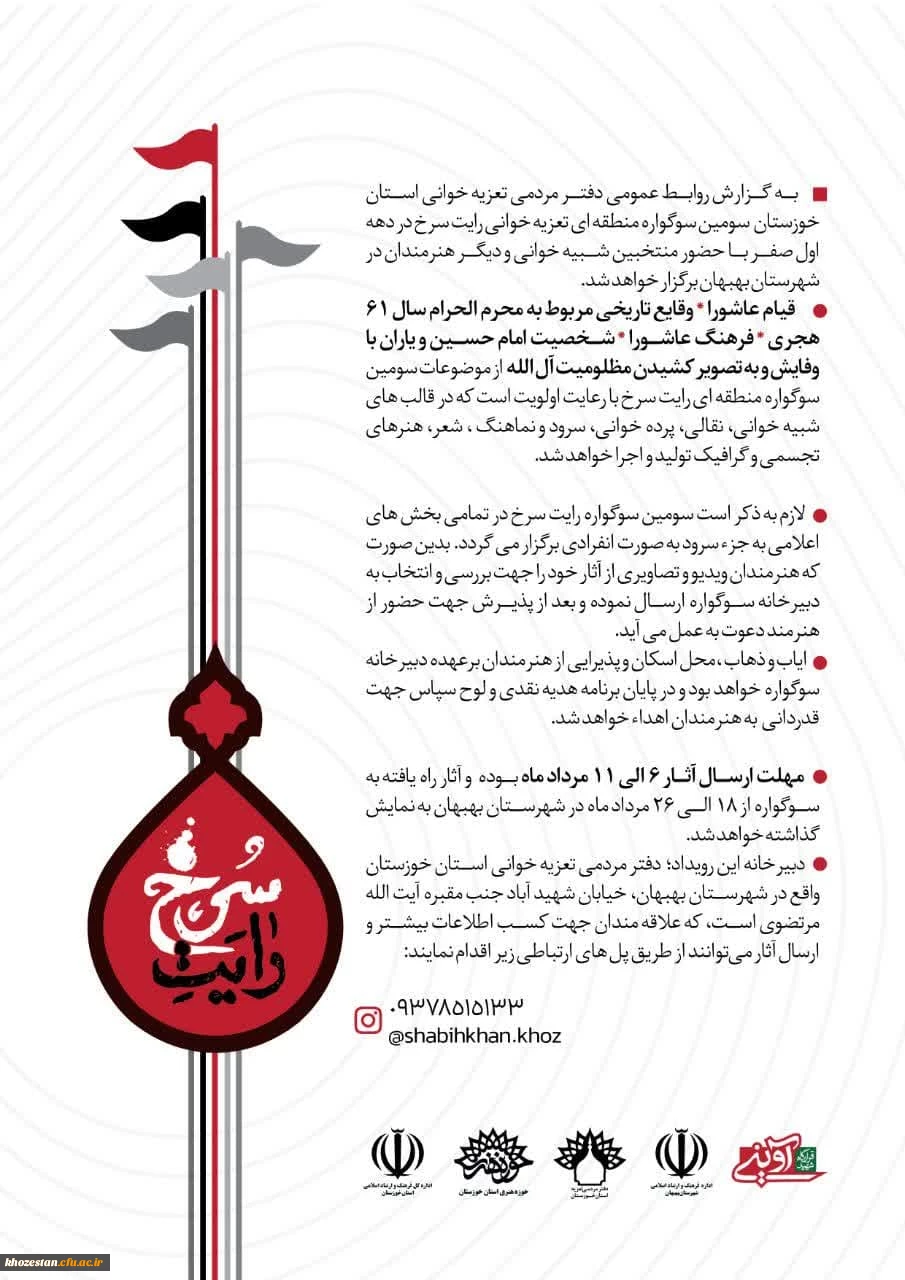 به گزارش روابط عمومی دفتر مردمی تعزیه خوانی استان
خوزستان سومین سوگواره منطقه ای تعزیه خوانی رایت سرخ در دهه
اول صفر با حضور منتخبین شبیه خوانی و دیگر هنرمندان در
شهرستان بهبهان برگزار خواهد شد.
قیام عاشورا * وقایع تاریخی مربوط به محرم الحرام سال ۶۱
هجری * فرهنگ عاشورا * شخصیت امام حسین و یاران با
وفایش و به تصویر کشیدن مظلومیت آل الله از موضوعات سومین
سوگواره منطقه ای رایت سرخ با رعایت اولویت است که در قالب های
شبیه خوانی، نقالی، پرده خوانی، سرود و نماهنگ ، شعر، هنرهای
تجسمی و گرافیک تولید و اجرا خواهد شد.
لازم به ذکر است سومین سوگواره رایت سرخ در تمامی بخش های
اعلامی به جزء سرود به صورت انفرادی برگزار می گردد. بدین صورت
که هنرمندان ویدیو و تصاویری از آثار خود را جهت بررسی و انتخاب به
دبیرخانه سوگواره ارسال نموده و بعد از پذیرش جهت حضور از
هنرمند دعوت به عمل می آید.
ایاب و ذهاب ،محل اسکان و پذیرایی از هنرمندان برعهده دبیر خانه
سوگواره خواهد بود و در پایان برنامه هدیه نقدی و لوح سپاس جهت
قدردانی به هنرمندان اهداء خواهد شد.
مهلت ارسال آثار ۶ الی ۱۱ مرداد ماه بوده و آثار راه یافته به
سوگواره از ۱۸ الی ۲۶ مرداد ماه در شهرستان بهبهان به نمایش
گذاشته خواهد شد.
دبیرخانه این رویداد؛ دفتر مردمی تعزیه خوانی استان خوزستان
واقع در شهرستان بهبهان، خیابان شهید آباد جنب مقبره آیت الله
مرتضوی است، که علاقه مندان جهت کسب اطلاعات بیشتر و
ارسال آثار می‌توانند از طریق پل های ارتباطی زیر اقدام نمایند:
۰۹۳۷۸۵۱۵۱۳۳
@shabihkhan.khoz
سرخ
رایتِ
قرارگاه شهید آوینی
اداره فرهنگ و ارشاد اسلامی
شهرستان بهبهان
دفتر مردمی تعزیه
استان خوزستان
حوزه هنری استان خوزستان
اداره کل فرهنگ و ارشاد اسلامی
استان خوزستان
khozestan.cfu.ac.ir